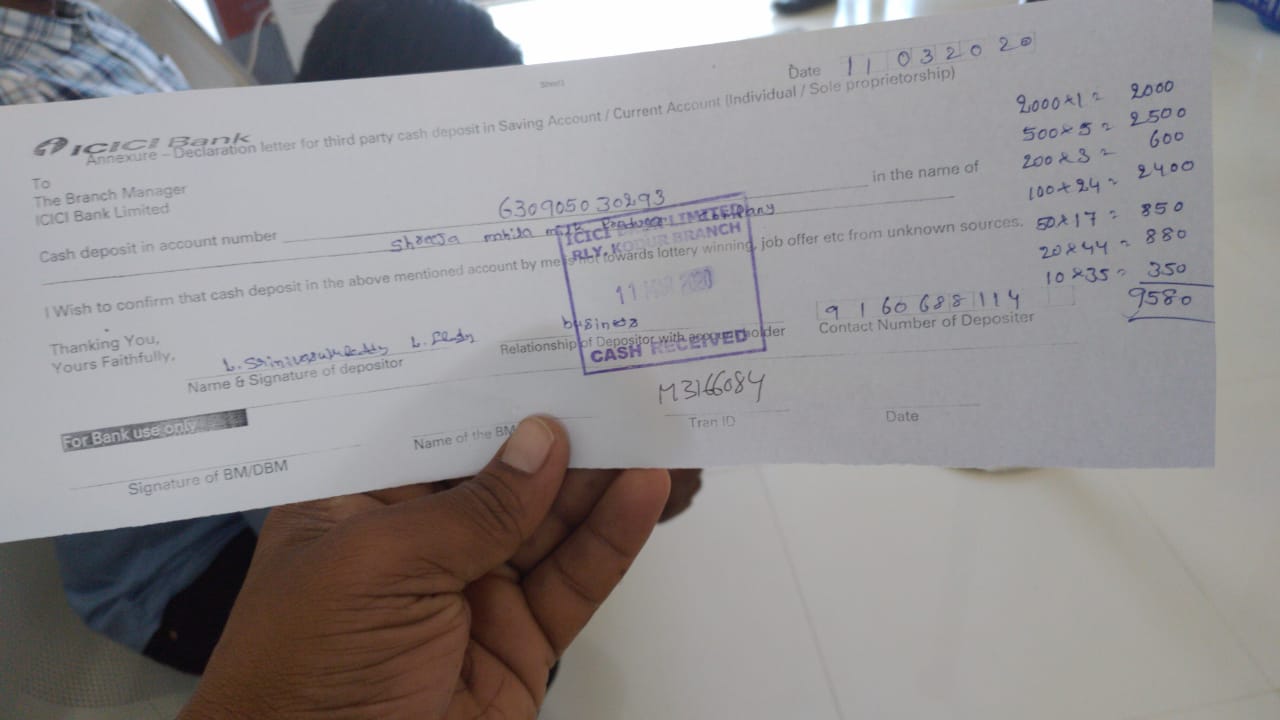 Sheet1
Date 11032020
ICICI Bank
Annexure – Declaration letter for third party cash deposit in Saving Account / Current Account (Individual / Sole proprietorship)
To
The Branch Manager
ICICI Bank Limited
Cash deposit in account number 630905030293 in the name of
Shreeja mahila milk Producer company
I Wish to confirm that cash deposit in the above mentioned account by me is not towards lottery winning, job offer etc from unknown sources.
Thanking You,
Yours Faithfully,
L. Reddy
Name & Signature of depositor
business
Relationship of Depositor with account holder
9160688114
Contact Number of Depositer
ICICI BANK LIMITED
RLY. KODUR BRANCH
11 MAR 2020
CASH RECEIVED
For Bank use only
Signature of BM/DBM
Name of the BM
M3166084
Tran ID
Date
2000×1 = 2000
500×5 = 2500
200×3 = 600
100×24 = 2400
50×17 = 850
20×44 = 880
10×35 = 350
9580